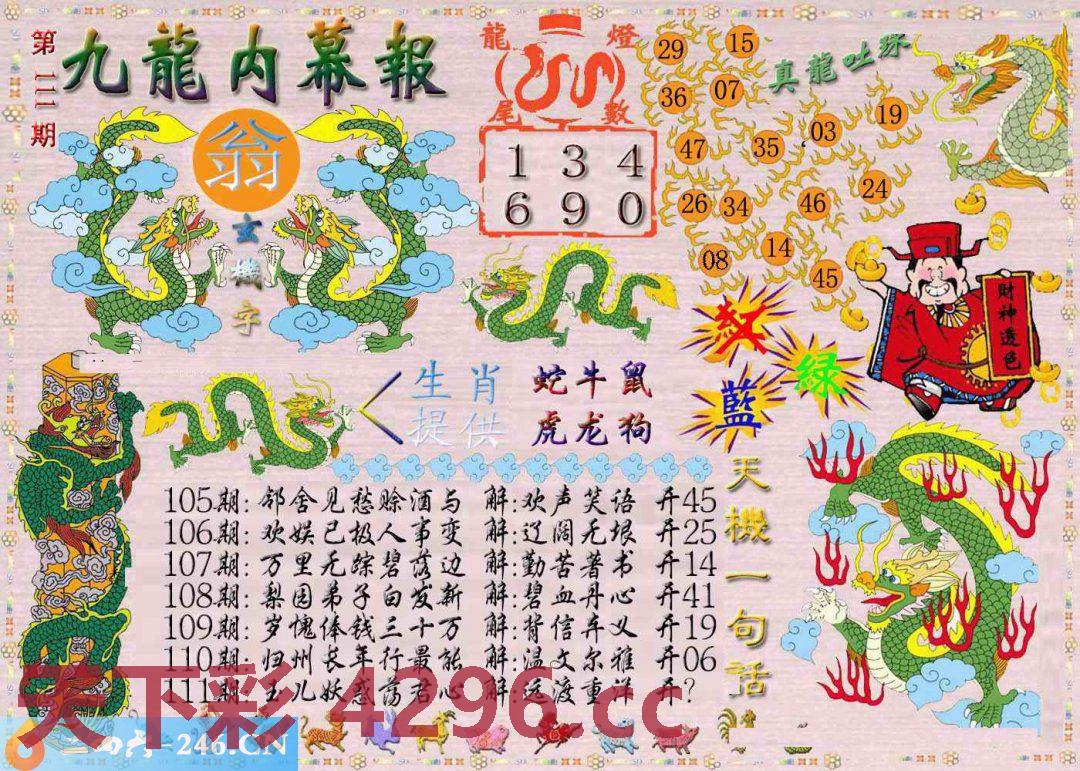 第111期
九龍内幕報
翁
玄機字
龍燈
尾數
1 3 4
6 9 0
真龍吐珠
29 15
36 07
47 35 03 19
26 34 46 24
08 14 45
財神透色
紅
綠
藍
生肖
提供
蛇牛鼠
虎龙狗
天機一句話
105期: 邻舍见愁赊酒与 解:欢声笑语 开45
106期: 欢娱已极人事变 解:辽阔无垠 开25
107期: 万里无踪碧落边 解:勤苦著书 开14
108期: 梨园弟子白发新 解:碧血丹心 开41
109期: 岁愧俸钱三十万 解:背信弃义 开19
110期: 归州长年行最能 解:温文尔雅 开06
111期: 玉儿妖惑荡君心 解:远渡重洋 开?
天下彩 4296.cc
=246.CN